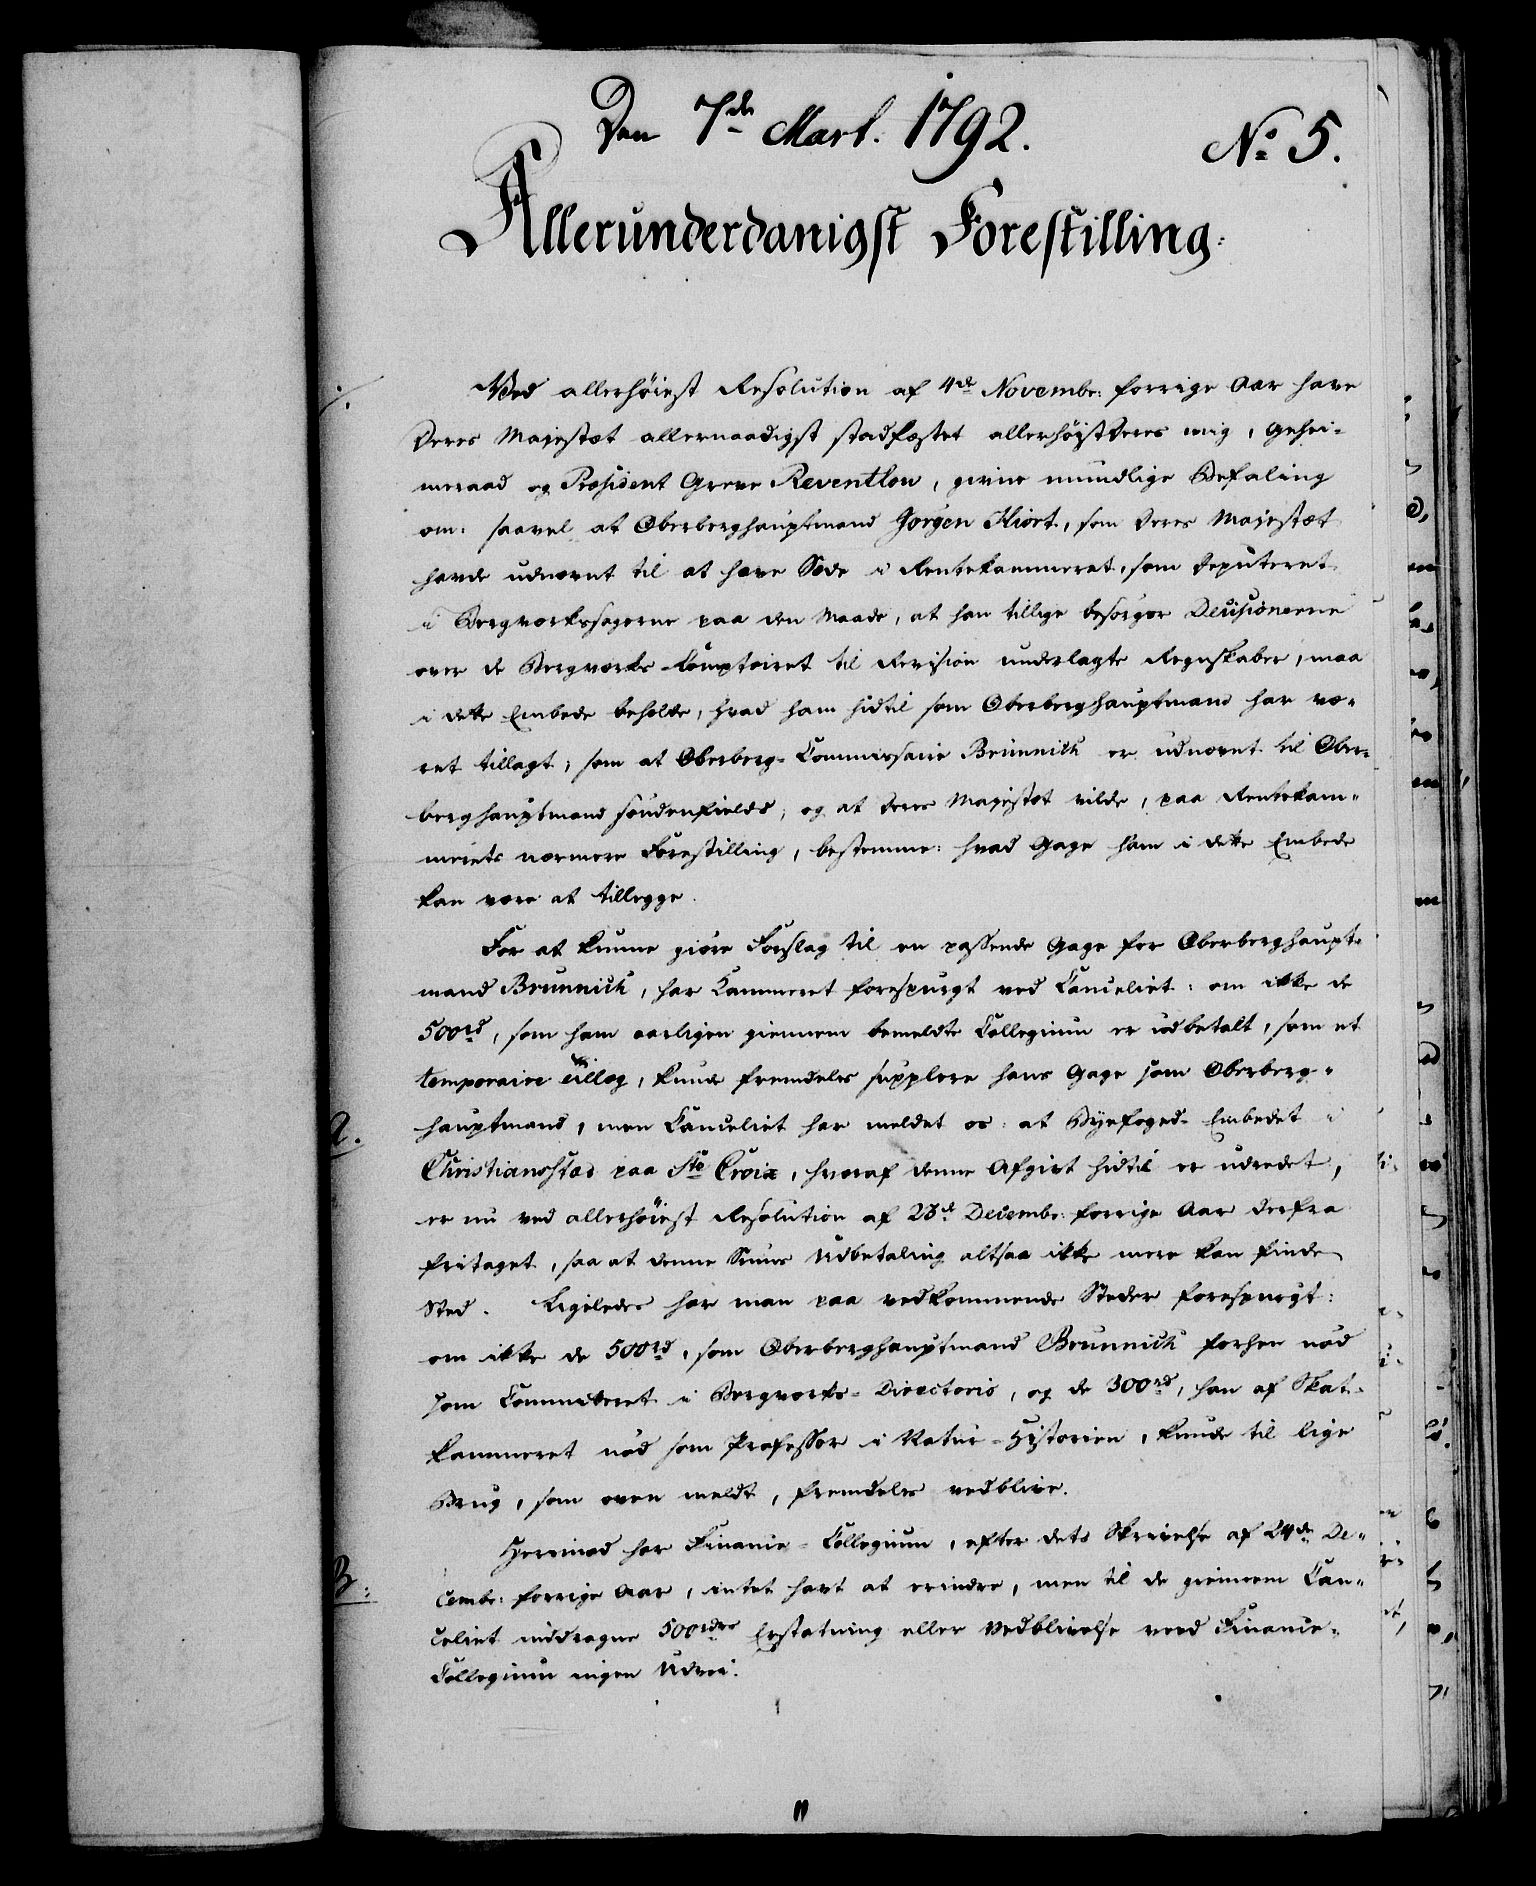 Den 7de Mart. 1792.
No 5.
Allerunderdanigst Forestilling:
Ved allerhöiest Resolution af 4de Novembr: forrige Aar have
Deres Majestæt allernaadigst stadfæstet allerhöistderes mig, Gehei-
meraad og Præsident Greve Reventlow, givne mundlige Befaling
om: saavel at Oberberghauptmand Jørgen Hiort, som Deres Majestæt
havde udnævnt til at have Sæde i Rentekammeret, som Deputeret
i Bergværkssagerne paa den Maade, at han tillige besørger Decisionerne
over de Bergværks-Comptoiret til Revision underlagte Regnskaber, maa
i dette Embede beholde, hvad ham hidtil som Oberberghauptmand har væ-
ret tillagt, som at Oberberg-Commissair Brünnich er udnævnt til Ober-
berghauptmand søndenfields, og at Deres Majestæt vilde, paa Rentekam-
merets nærmere Forestilling, bestemme: hvad Gage ham i dette Embede
kan være at tillegge.
For at kunne giöre Forslag til en passende Gage for Oberberghaupt-
mand Brünnich, har Kammeret forespurgt ved Cancelliet: om ikke de
500rd, som ham aarligen giennem bemeldte Collegium er udbetalt, som et
temporaire Tillæg, kunde fremdeles supplere hans Gage som Oberberg-
A.
hauptmand, men Cancelliet har meldet os: at Byefoged-Embedet i
Christianstæd paa Ste Croix, hvoraf denne Afgivt hidtil er udredet,
er nu ved allerhöiest Resolution af 23de Decembr: forrige Aar derfra
fritaget, saa at denne Summes Udbetaling altsaa ikke mere kan finde
Sted. Ligeledes har man paa vedkommende Steder forespurgt:
om ikke de 500rd, som Oberberghauptmand Brünnich forhen nød
som Committeret i Bergværks-Directoriet, og de 300rd, han af Skat-
kammeret nød som Professor i Natur-Historien, kunde til lige
Brug, som oven meldt, fremdeles vedblive.
B:
Herimod har Finance-Collegium, efter dets Skrivelse af 24de De-
cembr: forrige Aar, intet havt at erindre, men til de giennem Can-
celiet inddragne 500rdrs Erstatning eller Vedblivelse veed Finance-
Collegium ingen Udvei.